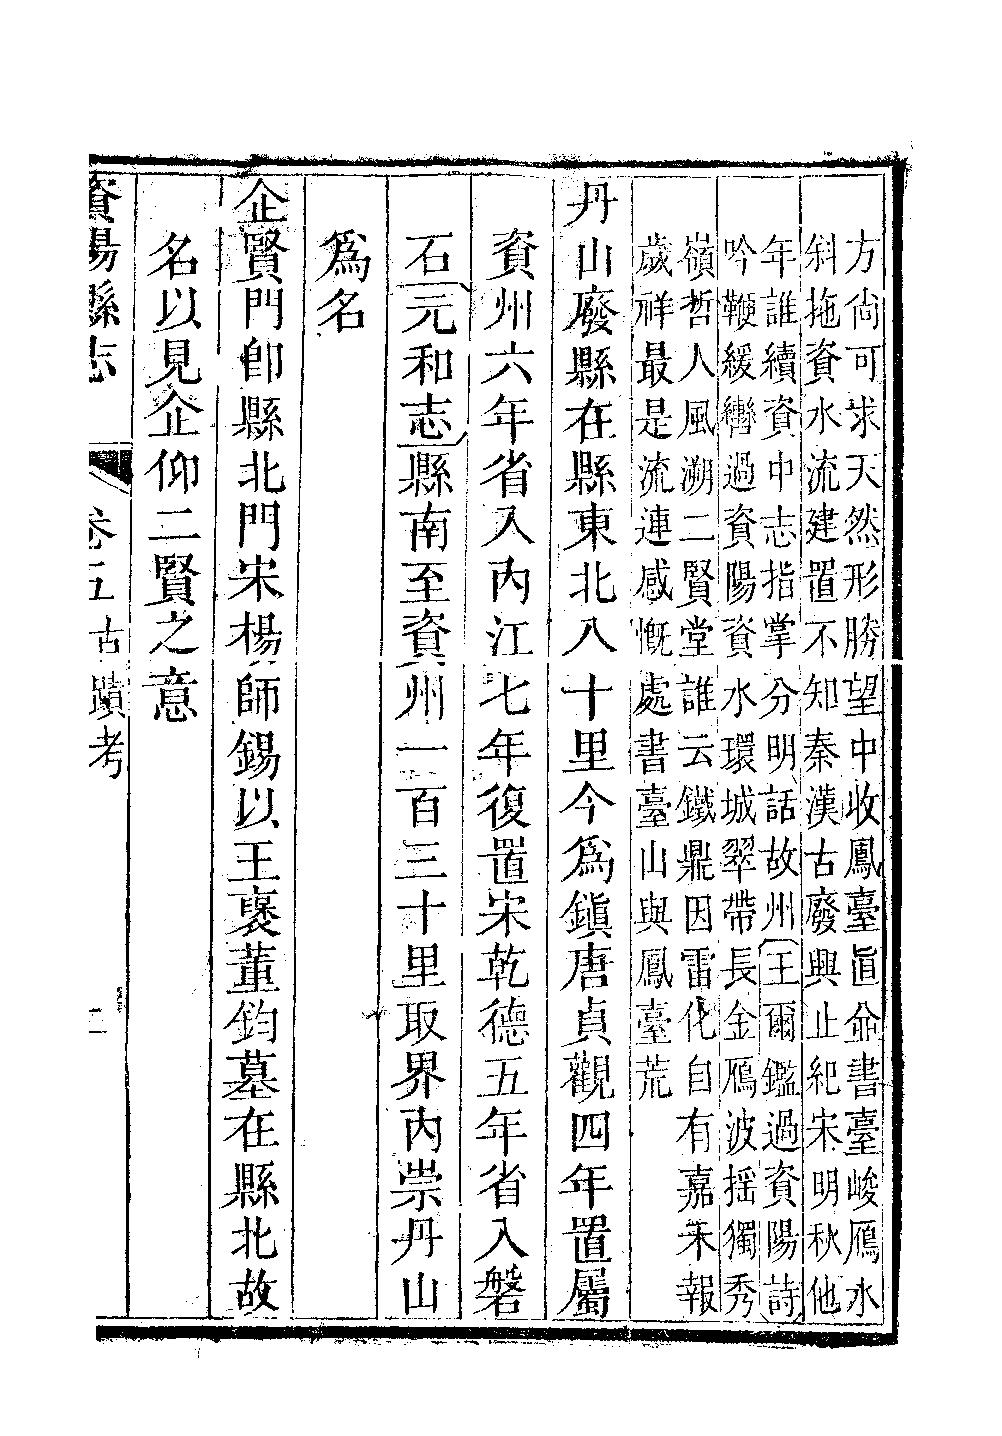 方尙可求天然形勝望中收鳳臺直𠇮書臺峻鴈水
斜拖資水流建置不知秦漢古廢興止紀宋明秋他
年誰續資中志指掌分明話故州王爾鑑過資陽詩
吟鞭緩轡過資陽資水環城翠帶長金鴈波揺獨秀
嶺哲人風溯二賢堂誰云鐵鼎因雷化自有嘉禾報
歲祥最是流連感慨處書臺山與鳳臺荒
丹山廢縣在縣東北八十里今爲鎭唐貞觀四年置屬
資州六年省入內江七年復置宋乾德五年省入磐
石元和志縣南至資州一百三十里取界內崇丹山
爲名
企賢門卽縣北門宋楊師錫以王褒董鈞墓在縣北故
名以見企仰二賢之意
資陽縣志 卷五古蹟考 二